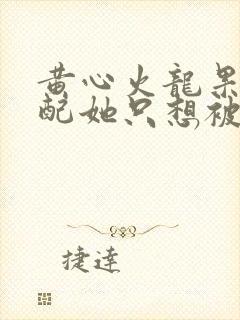 黄心火龍果
配她只想被
捷達